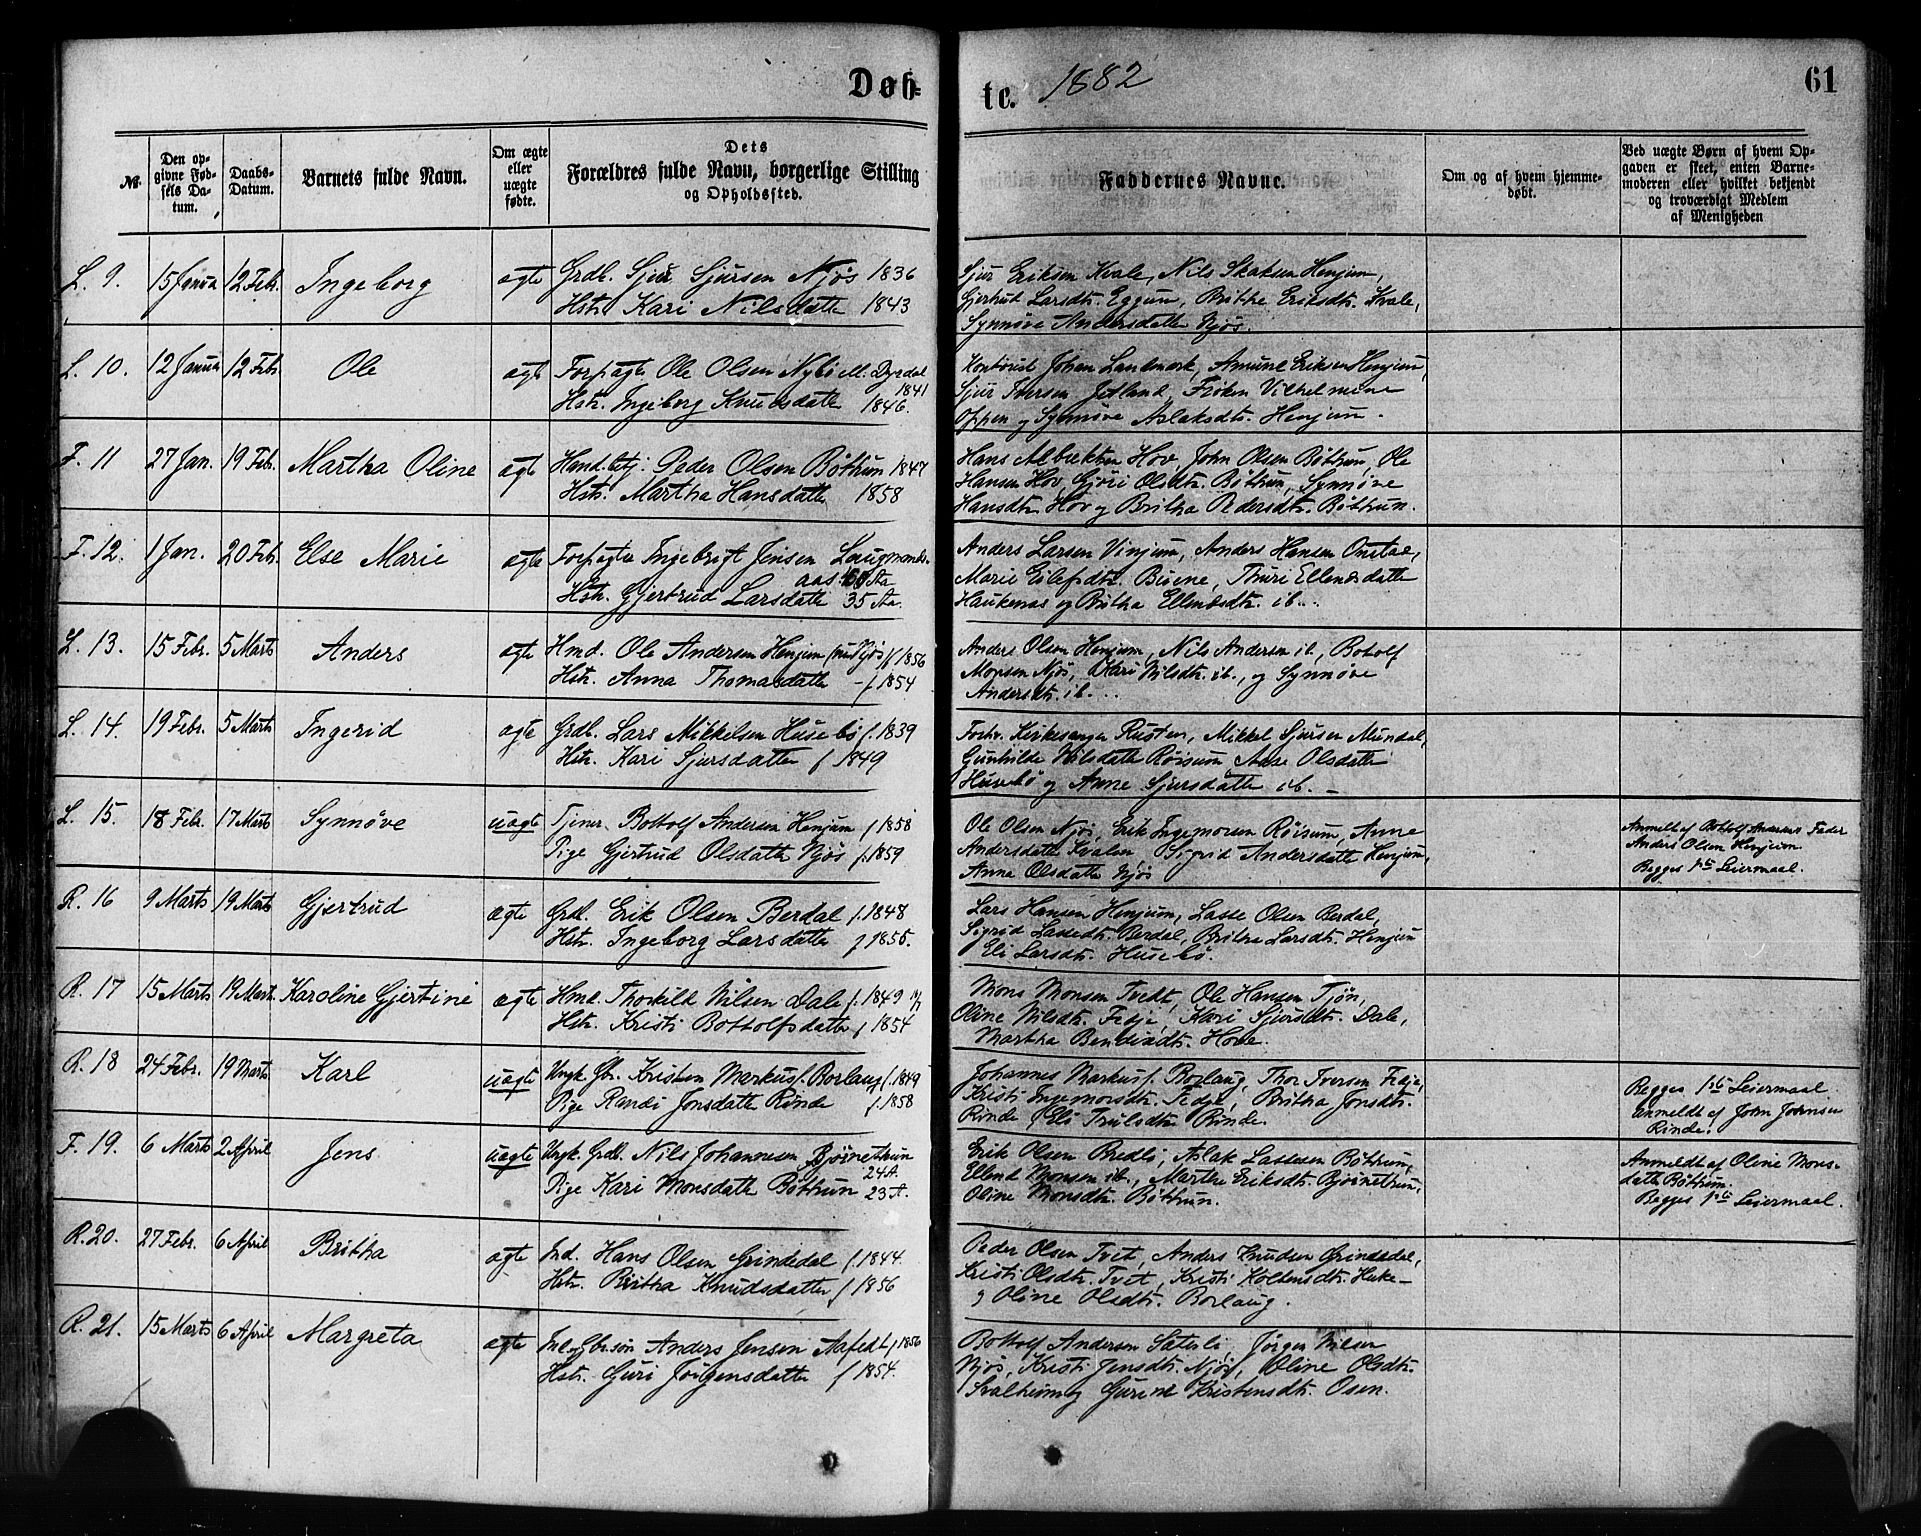 Døb=
te. 1882
61
№.
Den op-
givne Fød-
sels Da-
tum.
Daabs-
Datum.
Barnets fulde Navn.
Om ægte
eller
uægte
fødte.
Dets
Forældres fulde Navn, borgerlige Stilling
og Opholdssted.
Faddernes Navne.
Om og af hvem hjemme-
døbt.
Ved uægte Børn af hvem Op-
gaven er skeet, enten Barne-
moderen eller hvilket bekjendt
og troværdigt Medlem
af Menigheden
L. 9. 15 Janua 12 Feb. Ingeborg ægte Grdb. Sjur Sjursen Njøs 1836
Hstr. Kari Nilsdatte 1843
Sjur Eriksen Kvale, Nils Skaksen Henjum,
Gjertrud Larsdt. Eggum, Brithe Eriksdt. Kvale,
Synnøve Andersdatte Njøs.
L. 10. 12 Janua 12 Feb. Ole ægte Forpagte Ole Olsen Nybø M. Dyrdal
1841
Hstr. Ingeborg Knudsdatte 1846.
Kontorist Johan Landmark, Amund Eriksen Henjum,
Sjur Iversen Jetland, Frøken Vilhelmine
Oppen og Synnøve Aslaksdt. Henjum.
F. 11 27 Jan. 19 Feb. Martha Oline ægte Handelsbetj. Peder Olsen Bøthun 1847
Hstr. Martha Hansdatte 1858
Hans Albrektsen Hov John Olsen Bøthun, Ole
Hansen Hov Gjøri Olsdt. Bøthun, Synnøve
Hansdtr Hov og Britha Pedersdt. Bøthun.
F. 12. 1 Jan. 20 Feb. Else Marie ægte Forpagte Ingebrigt Jensen Laugmands-
aas 60 Aa
Hstr. Gjertrud Larsdatte 35 Aa.
Anders Larsen Vinjum, Anders Hansen Onstad,
Marie Eilefsdt. Buene, Thuri Ellendsdatte
Haukenas og Britha Ellendsdt. ib.
L. 13. 15 Febr. 5 Marts Anders ægte Hmd. Ole Andersen Henjum (nu Njøs) f. 1856
Hstr. Anna Thomasdatte - f. 1854
Anders Olsen Henjum, Nils Andersen ib., Botolf
Monsen Njøs, Kari Nilsdt. ib., og Synnøve
Andersdt. ib.
L. 14. 19 Febr. 5 Marts Ingerid ægte Grdb. Lars Mikkelsen Husebø f. 1839
Hstr. Kari Sjursdatte f 1849
Forhv. Kirkesanger Rusten, Mikkel Sjursen Mundal,
Gunhilde Nilsdatte Røisum Aase Olsdatte
Husebø og Anne Sjursdatte ib. -
L. 15. 18 Febr. 17 Marts Synnøve uægte Tjener Bottolf Andersen Henjum f 1858
Pige Gjertrud Olsdatte Njøs f. 1859
Ole Olsen Njøs, Erik Ingemorsen Røisum, Anne
Andersdatte Kvalen, Sigrid Andersdatte Henjum,
Anna Olsdatte Njøs
Anmeldt af Bottolf Andersens Fader
Anders Olsen Henjum.
Begges 1ste Leiermaal.
R. 16 9 Marts 19 Marts Gjertrud ægte Grdb. Erik Olsen Berdal f. 1848
Hstr. Ingeborg Larsdatte f 1855.
Lars Hansen Henjum, Lasse Olsen Berdal,
Sigrid Lassedt. Berdal, Brithe Larsdt. Henjum
Eli Larsdt. Husebø.
R. 17 15 Marts 19 Mart. Karoline Gjertine ægte Hmd. Thorkild Nilsen Dale f. 1849
Hstr. Kristi Bottolfsdatte f 1854
Mons Monsen Tvedt, Ole Hansen Tjøn,
Oline Nilsdt. Fedje, Kari Sjursdt. Dale,
Martha Bendixdt. Hove.
R. 18 24 Febr. 19 Marts Karl uægte Ungk. Gbr. Kristen Markusf. Borlaug f. 1849
Pige Randi Jonsdatte Rinde f. 1858
Johannes Markusf. Borlaug, Thor Iversen Fedje,
Kristi Ingemorsdt. Fedje, Britha Jonsdt.
Rinde Eli Trulsdt. Rinde.
Begges 1ste Leiermaal
anmeldt af John Johnsen
Rinde.
F. 19. 6 Marts 2 April Jens uægte Ungk. Grdb. Nils Johannesen Bjørnethun
24 A
Pige Kari Monsdatte Bøthun 23 A.
Erik Olsen Bredli, Aslak Lassesen Bøthun,
Ellend Monsen ib., Marthe Eriksdt. Bjørnethun,
Oline Monsdt. Bøthun.
Anmeldt af Oline Mons-
datte Bøthun.
Begges 1ste Leiermaal.
R. 20. 27 Febr. 6 April Britha ægte Ind. Hans Olsen Grindedal f. 1844.
Hstr. Britha Knudsdatte f 1856
Peder Olsen Tvet, Anders Knudsen Grindedal,
Kristi Olsdt. Tvet, Kristi Koldensdt. Huke-
og Oline Olsdt. Borlaug.
R. 21. 15 Marts 6 April Margreta ægte Ind. Gbr.søn Anders Jensen Aafedt f 1856
Hstr. Guri Jørgensdatte f 1854.
Bottolf Andersen Säterli, Jørgen Nilsen
Njøs, Kristi Jensdt. Njøs, Oline Olsdt.
Svalheim og Gurine Kristensdt. Osen.